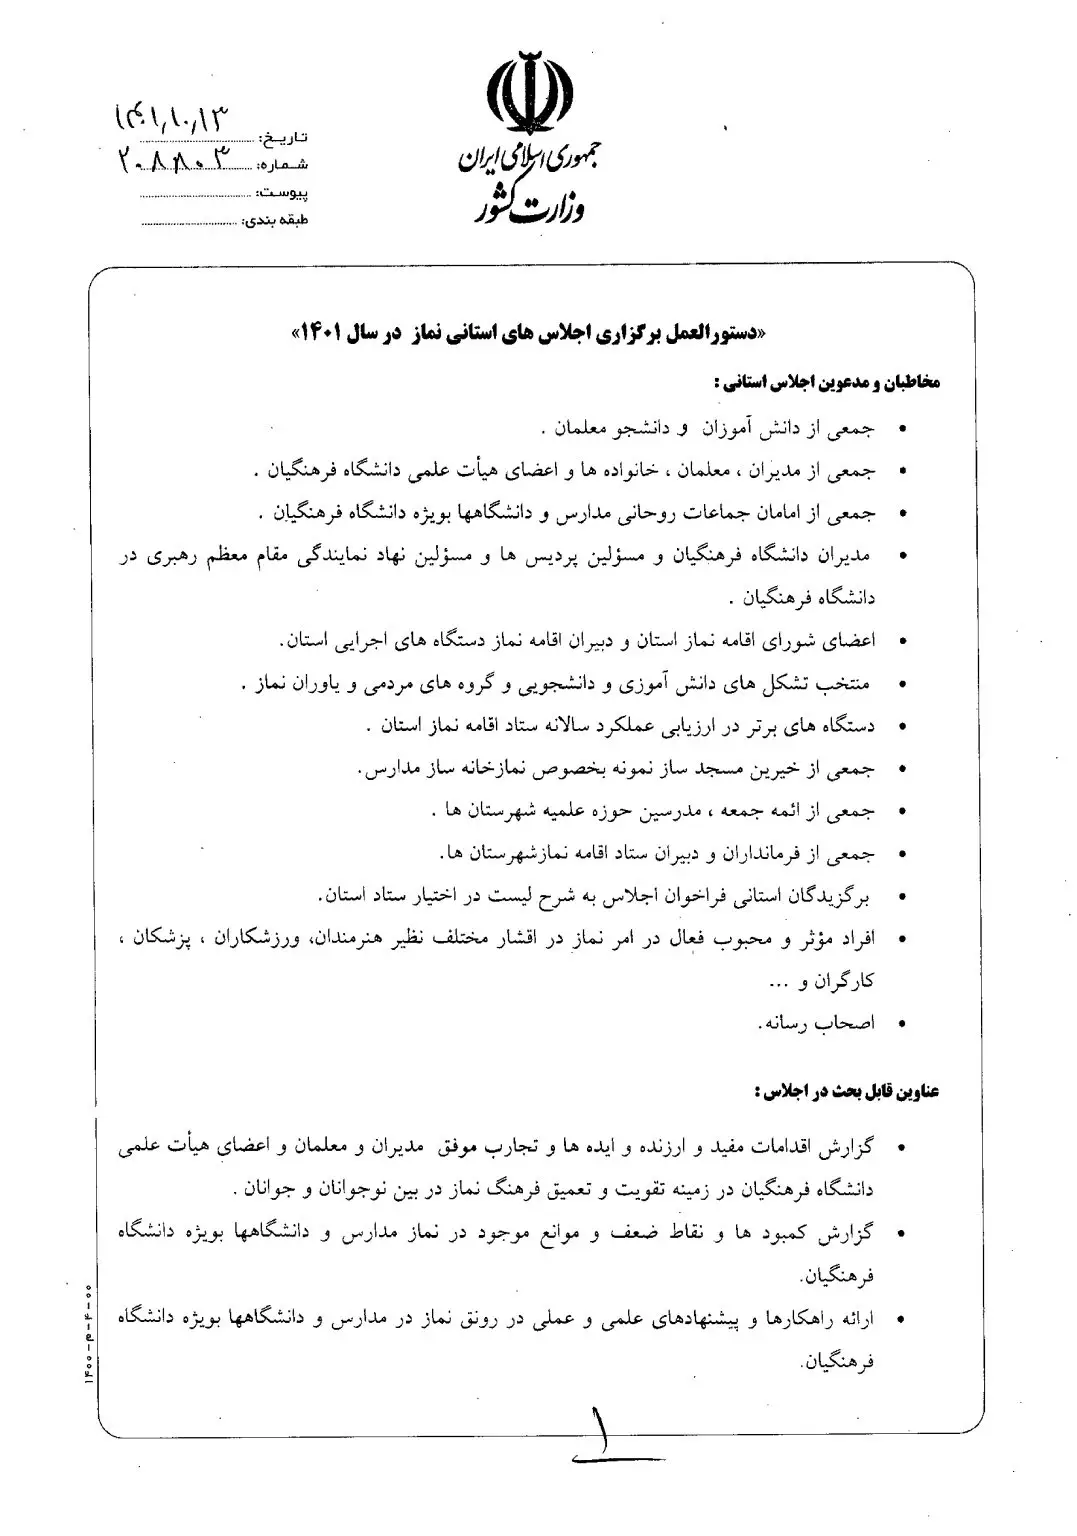 جمهوری اسلامی ایران
وزارت کشور
تاریخ: ۱۴۰۱,۱۰,۱۳
شماره: ۲۰۸۸۰۳
پیوست:
طبقه بندی:
«دستورالعمل برگزاری اجلاس های استانی نماز در سال ۱۴۰۱»
مخاطبان و مدعوین اجلاس استانی :
• جمعی از دانش آموزان و دانشجو معلمان .
• جمعی از مدیران ، معلمان ، خانواده ها و اعضای هیأت علمی دانشگاه فرهنگیان .
• جمعی از امامان جماعات روحانی مدارس و دانشگاهها بویژه دانشگاه فرهنگیان .
• مدیران دانشگاه فرهنگیان و مسؤلین پردیس ها و مسؤلین نهاد نمایندگی مقام معظم رهبری در
دانشگاه فرهنگیان .
• اعضای شورای اقامه نماز استان و دبیران اقامه نماز دستگاه های اجرایی استان.
• منتخب تشکل های دانش آموزی و دانشجویی و گروه های مردمی و یاوران نماز .
• دستگاه های برتر در ارزیابی عملکرد سالانه ستاد اقامه نماز استان .
• جمعی از خیرین مسجد ساز نمونه بخصوص نمازخانه ساز مدارس.
• جمعی از ائمه جمعه ، مدرسین حوزه علمیه شهرستان ها .
• جمعی از فرمانداران و دبیران ستاد اقامه نمازشهرستان ها.
• برگزیدگان استانی فراخوان اجلاس به شرح لیست در اختیار ستاد استان.
• افراد مؤثر و محبوب فعال در امر نماز در اقشار مختلف نظیر هنرمندان، ورزشکاران ، پزشکان ،
کارگران و ...
• اصحاب رسانه.
عناوین قابل بحث در اجلاس :
• گزارش اقدامات مفید و ارزنده و ایده ها و تجارب موفق مدیران و معلمان و اعضای هیأت علمی
دانشگاه فرهنگیان در زمینه تقویت و تعمیق فرهنگ نماز در بین نوجوانان و جوانان .
• گزارش کمبود ها و نقاط ضعف و موانع موجود در نماز مدارس و دانشگاهها بویژه دانشگاه
فرهنگیان.
• ارائه راهکارها و پیشنهادهای علمی و عملی در رونق نماز در مدارس و دانشگاهها بویژه دانشگاه
فرهنگیان.
۱۴۰۰-م-۴-۱-۰۰
۱